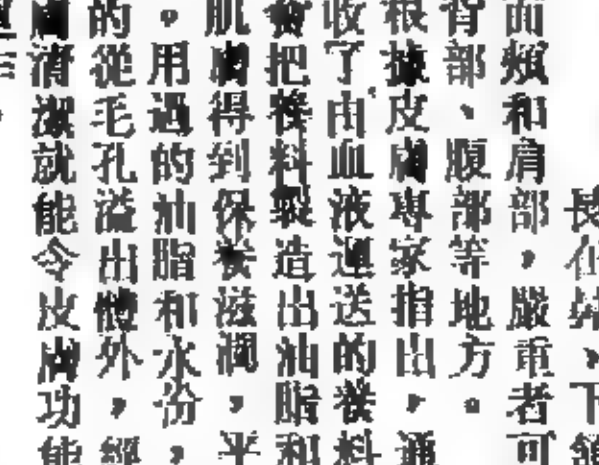 長
下
面頰和肩部，嚴重者可
背部、腹部等地方。
根據皮膚專家指出，通
收了由血液運送的養料
養把養料製造出油脂和
肌膚得到保養滋潤，平
。用過的油脂和水份，
的從毛孔溢出體外，經
膚清潔就能令皮膚功能